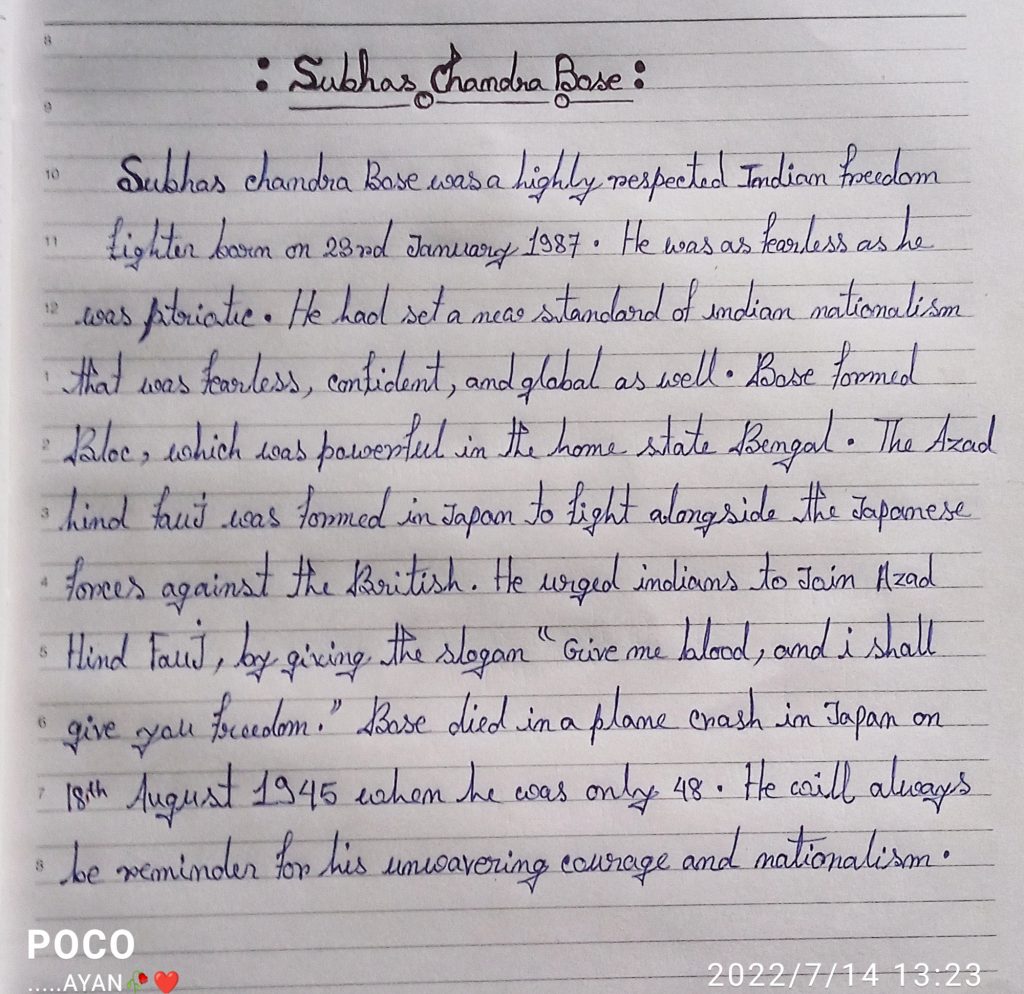 8
: Subhas Chandra Bose :
9
10 Subhas chandra Bose was a highly respected Indian freedom
11 fighter born on 23rd January 1987. He was as fearless as he
12 was ptriotic. He had set a new standard of indian nationalism
1 that was fearless, confident, and global as well. Bose formed
2 Bloc, which was powerful in the home state Bengal. The Azad
3 hind fauj was formed in Japan to fight alongside the Japanese
4 forces against the British. He urged indians to Join Azad
5 Hind Fauj, by giving the slogan "Give me blood, and i shall
6 give you freedom." Bose died in a plane crash in Japan on
7 18th August 1945 when he was only 48. He will always
8 be reminder for his unwavering courage and nationalism.
POCO
.....AYAN🥀❤️
2022/7/14 13:23